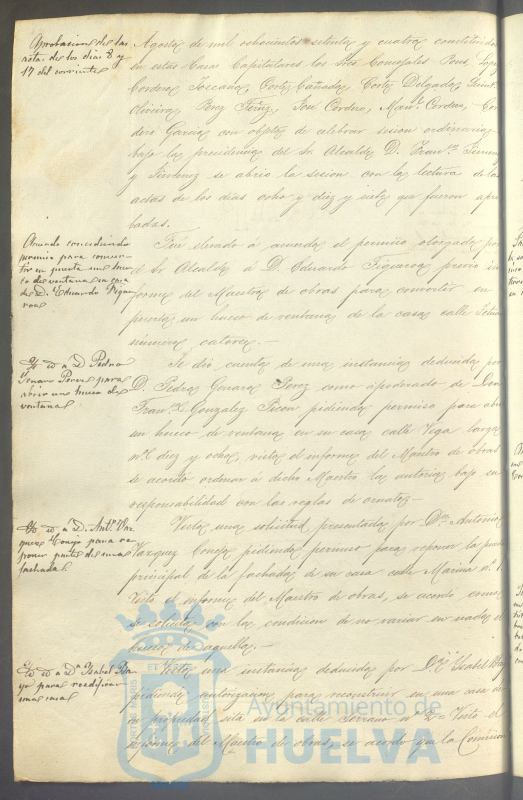 Aprobacion de las
actas de los dias 8 y
17 del corriente
Agosto de mil ochocientos setenta y cuatro constituidos
en estas Casas Capitulares los Sres. Concejales Pons, Lopez
Cordero, Toscano, Cortes Cañada, Cortes Delgado, Quint.
Oliveira, Perez Feñz, Jose Cordero, Man.l Cordero, Cor-
dero Garcia con objeto de celebrar sesion ordinaria
bajo la presidencia del Sr. Alcalde D. Fran.co Jimenez
y Jimenez se abrio la sesion con la lectura de las
actas de los dias ocho y diez y siete que fueron apro
badas.
Acuerdo concediendo
permiso para conver-
tir en puerta un hue-
co de ventana en casa
de D. Eduardo Figue-
roa
Fue elevado á acuerdo el permiso otorgado por
el Sr. Alcalde á D. Eduardo Figueroa previo in
forme del Maestro de obras para convertir en
puerta un hueco de ventana de la casa calle Tetuan
número catorce.—
Yd id a D Pedro
Genaro Perez para
abrir un hueco de
ventana
Se dio cuenta de una instancia deducida por
D. Pedro Genaro Perez como apoderado de Don
Fran.co X. Gonzalez Picon pidiendo permiso para abrir
un hueco de ventana en su casa calle Vega larga
nº diez y ocho, visto el informe del Maestro de obras
se acordó ordenar á dicho Maestro lo autorice bajo su
responsabilidad con las reglas de ornato.—
Yd id a D. Ant.º Vaz
quez Conejo para re
poner puerta de una
fachada
Vista una solicitud presentada por Dn. Antonio
Vazquez Conejo pidiendo permiso para reponer la puerta
principal de la fachada de su casa calle Marina nº 1
Visto el informe del Maestro de obras, se acordó como
se solicita con la condicion de no variar en nada el
hueco de aquella.—
Yd id a Dª Ysabel Ra
yo para reedificar
una casa
Vista una instancia deducida por Dª Ysabel Rayo
pidiendo autorizacion para reconstruir en una casa de
su propiedad sita en la calle Serrano nº 2= Visto el
informe del Maestro de obras, se acordó que la Comision
Ayuntamiento de
HUELVA